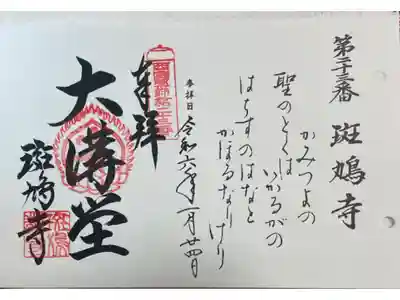 第三十二番 斑鳩寺
かみつよの
聖のとくは
いかるがの
はちすのはなと
かほるなり
けり
参拝日 令和六年一月廿四日
奉拝
大講堂
斑鳩寺